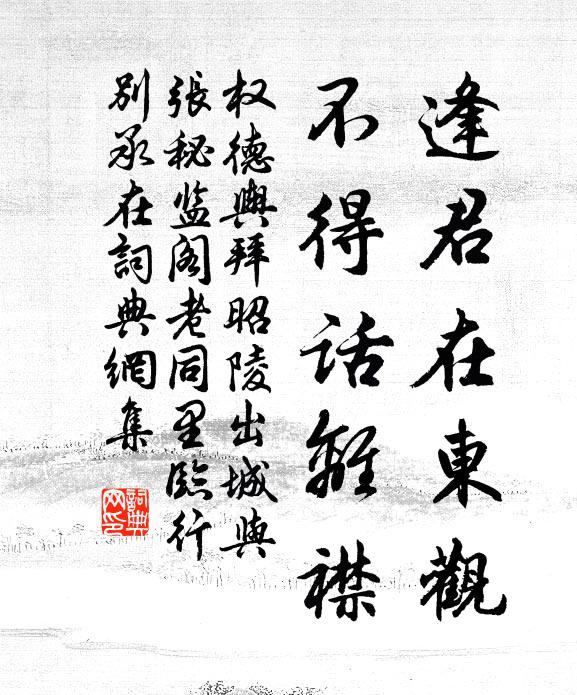 逢君在東觀
不得话離襟
权德輿拜昭陵出城與
張秘监阁老同里臨行
别承在詞典網集
詞典
网印